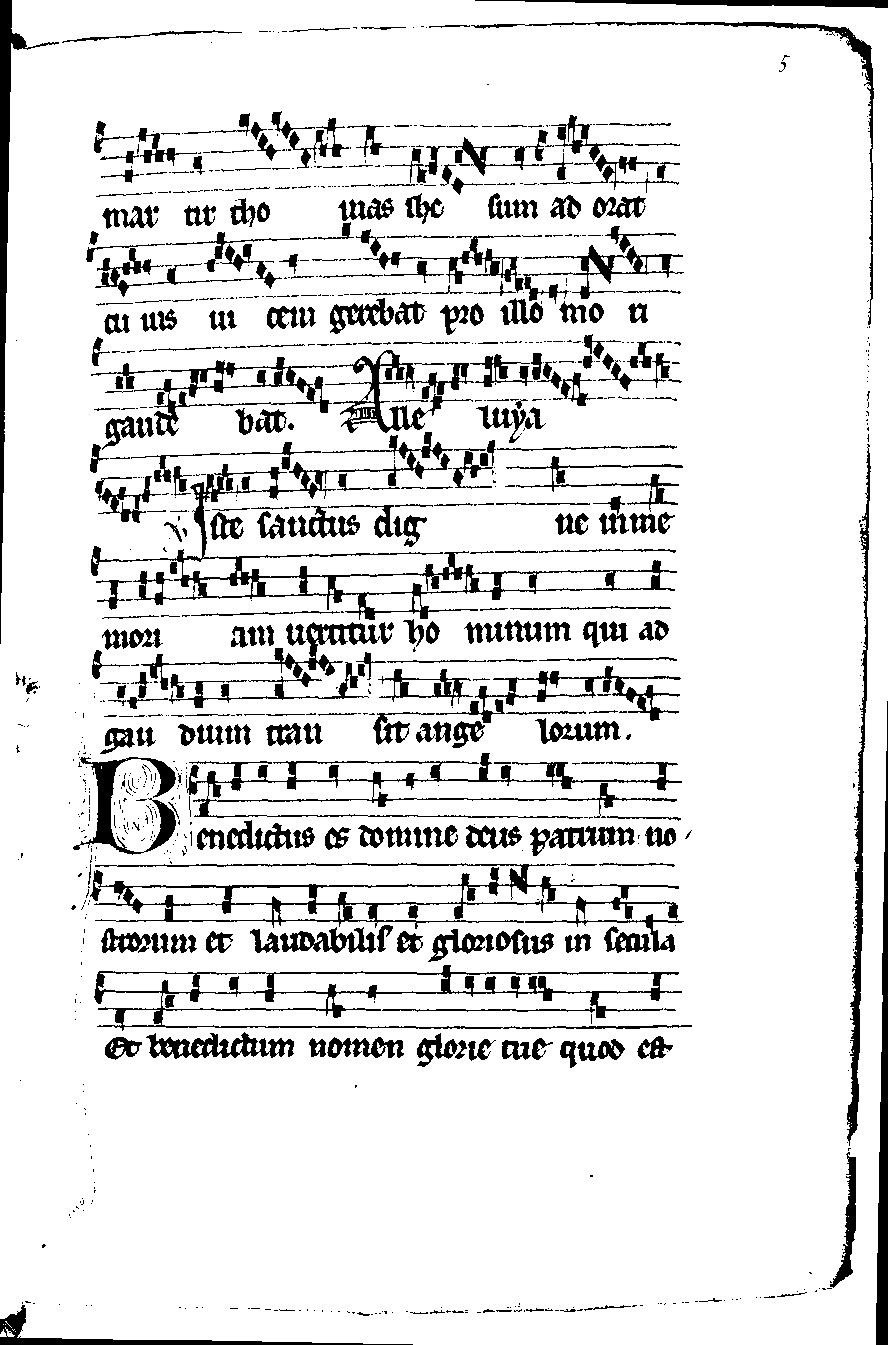 5
mar tir tho mas ihe sum ad orat
cu ius in cem gerebat pro illo mo ri
gaude bat. Alle luya
℣ Iste sanctus dig ne in me
mori am uertitur ho minum qui ad
gau dium tran sit ange lorum.
Benedictus es domine deus patrum no
strorum et laudabilis et gloriosus in secula
Et benedictum nomen glorie tue quod est